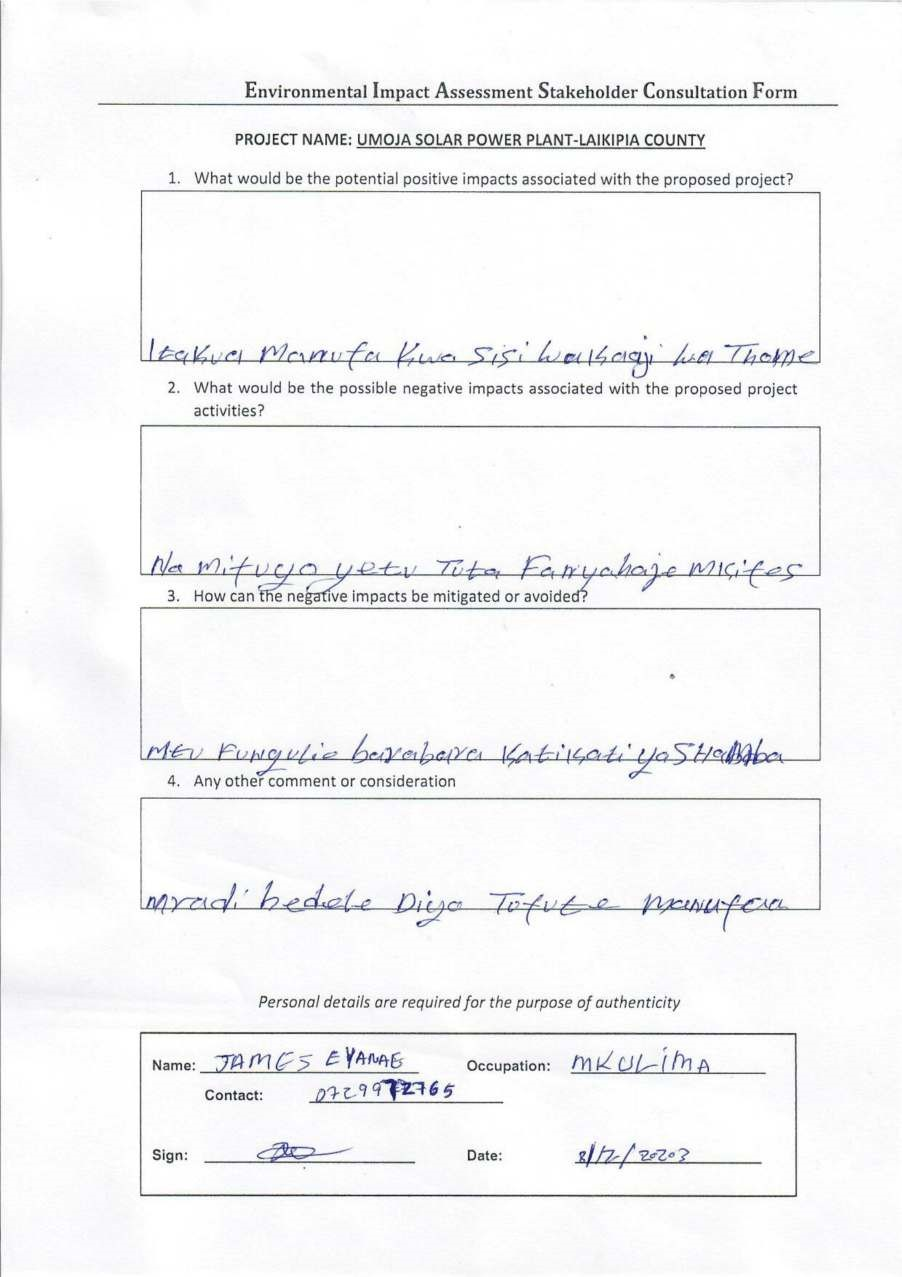 Environmental Impact Assessment Stakeholder Consultation Form
PROJECT NAME: UMOJA SOLAR POWER PLANT-LAIKIPIA COUNTY
1. What would be the potential positive impacts associated with the proposed project?
Itakua Manufa Kwa Sisi Wakaaji wa Thome
2. What would be the possible negative impacts associated with the proposed project
activities?
Na Mifugo yetu Tuta Fanyahaje
3. How can the negative impacts be mitigated or avoided?
Fungulie barabara Katikati ya
4. Any other comment or consideration
Mradi Diyo Tufute manufaa
Personal details are required for the purpose of authenticity
Name: JAMES Occupation: MKULIMA
Contact: 0729972765
Sign: Date: 8/12/2023